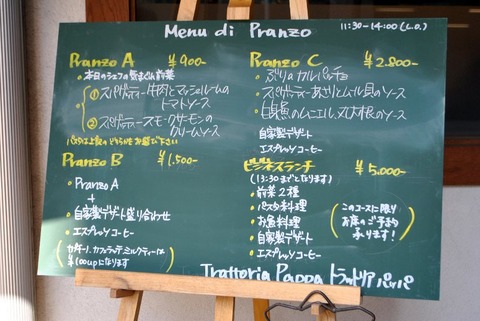 Menu di Pranzo
11:30-14:00(L.O.)
Pranzo A ¥900-
・本日のシェフの気まぐれ前菜
① スパゲッティー牛肉とマッシュルームの
トマトソース
② スパゲッティースモークサーモンの
クリームソース
パスタは上記のどちらかをお選び下さい
Pranzo B ¥1.500-
・Pranzo A
+
・自家製デザート盛り合わせ
・エスプレッソコーヒー
カプチーノ、カフェラッテ、ミルクティーは
¥100upになります
Pranzo C ¥2.800-
・ぶりのカルパッチョ
・スパゲッティーあさりとムール貝のソース
・白身魚のムニエル、丸大根のソース
自家製デザート
エスプレッソコーヒー
ビジネスランチ ¥5.000-
(13:30までとなります)
・前菜2種
・パスタ料理
・お魚料理
・自家製デザート
・エスプレッソコーヒー
このコースに限り
お席のご予約
承ります!
Trattoria Pappa トラットリア パッパ